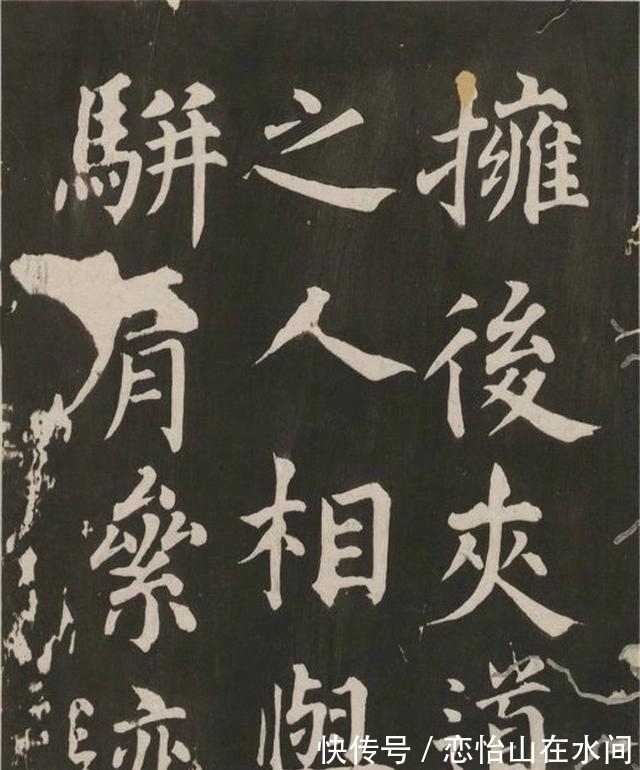 擁後夾道
之人相與
駢肩絫迹
快传号 / 恋怡山在水间